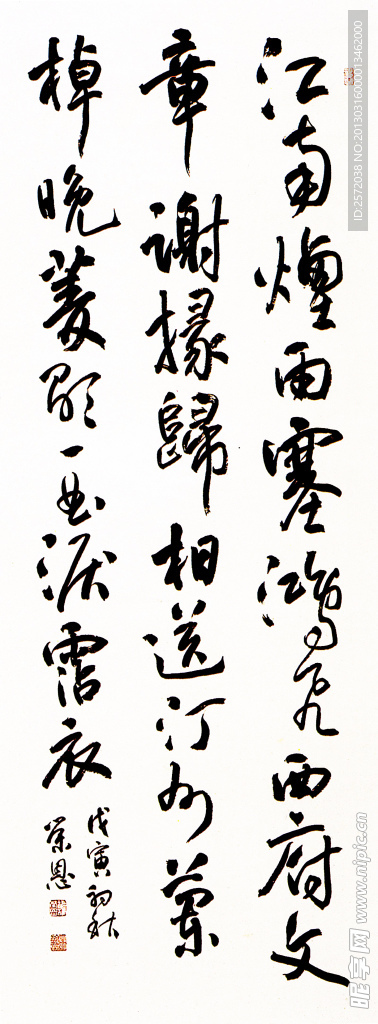 江南煙雨塞鴻飛西府文
章謝掾歸相送汀州蘭
棹晚菱歌一曲淚霑衣
戊寅初秋
榮恩
ID:2572038 NO:20130316000013462000
昵享网 www.nipic.cn